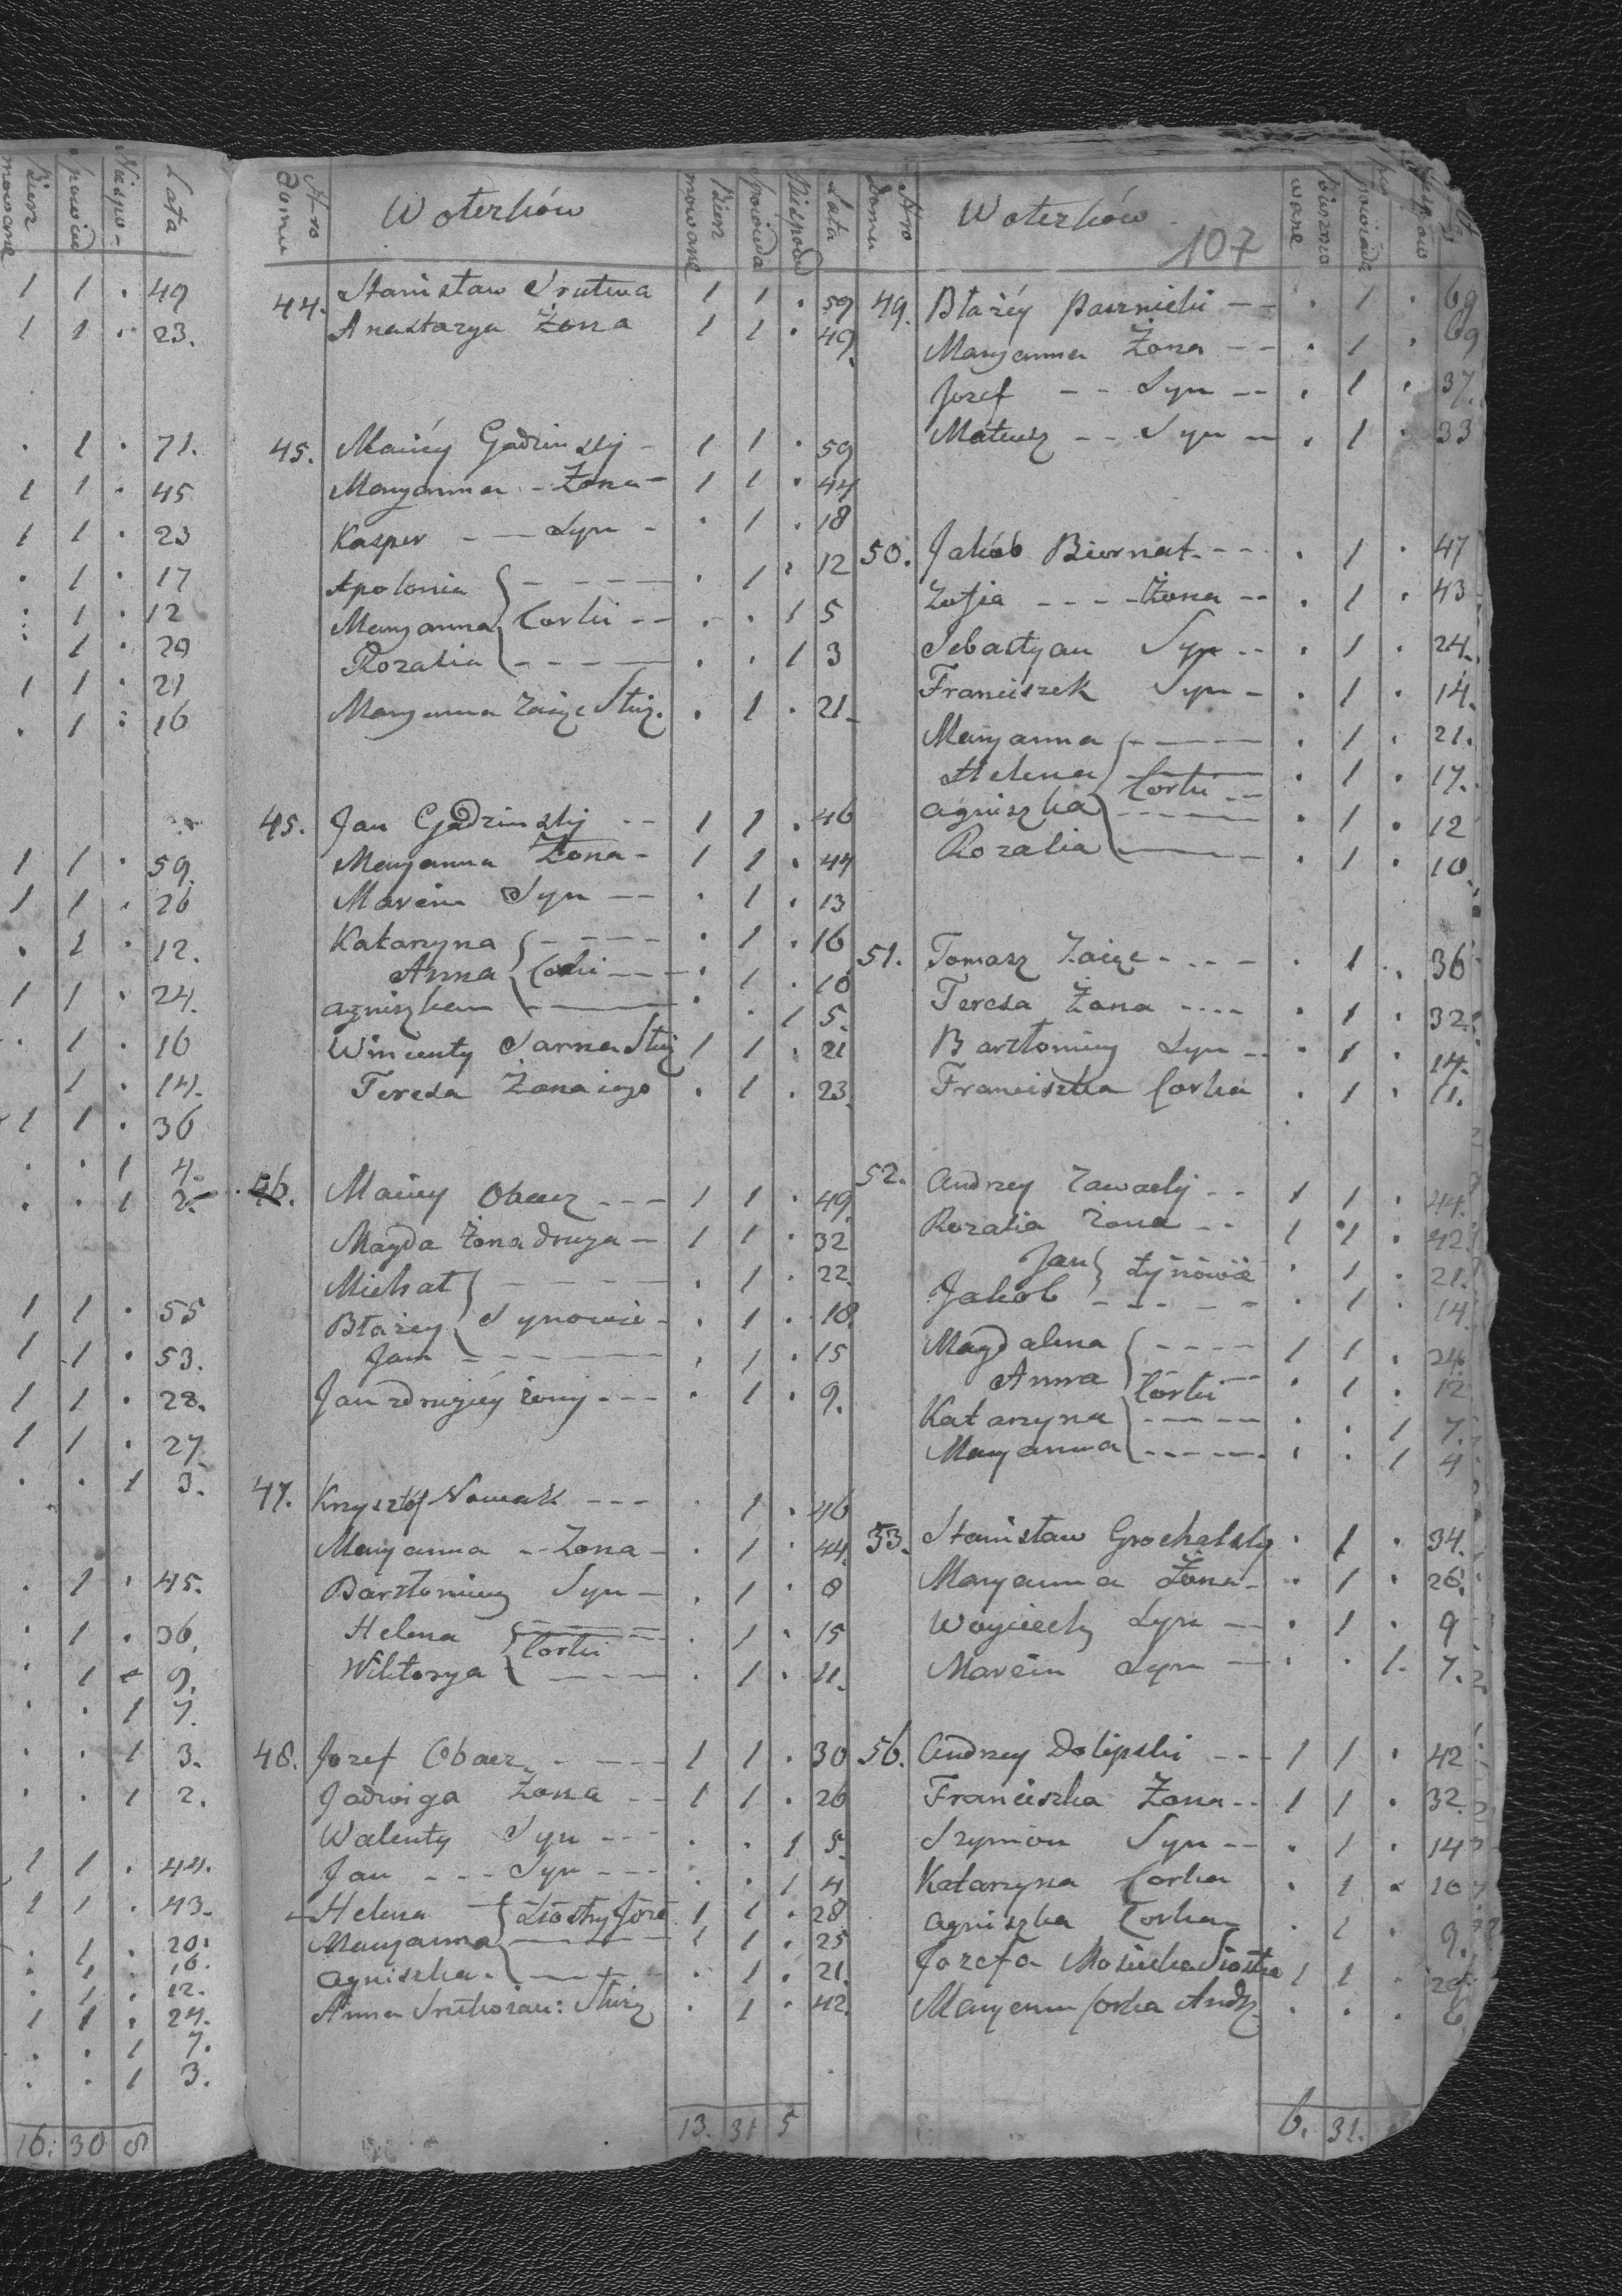 Bierz mowane
spowied
Niespo-
Lata
1 1 . 49
1 1 . 23.
. 1 . 71.
1 1 . 45
1 1 . 23
. 1 . 17
. 1 . 12
. 1 . 29
1 1 . 21
. 1 . 16
1 1 . 59.
1 1 . 26
. 1 . 12.
1 1 . 24.
. 1 . 16
1 . 14.
1 1 . 36
. . 1 4.
. . 1 2.
1 1 . 55
1 1 . 53.
1 1 . 28.
1 1 . 27
. . 1 3.
. 1 . 45.
. 1 . 36.
. 1 . 9.
. . 1 7.
. . 1 3.
. . 1 2.
1 1 . 44.
1 1 . 43.
. 1 . 20.
. 1 . 16.
. 1 . 12.
1 1 . 24.
. . 1 7.
. . 1 3.
16. 30 8
Nro Domu
Woterków
Bierz mowane
spowieda
Niespowd
Lata
44. Stanisław Srutwa 1 1 . 59
Anastazya Żona 1 1 . 49.
45. Maciey Gadzinsky - 1 1 . 59
Maryanna - Żona - 1 1 . 44
Kasper - - Syn - . 1 . 18
Apolonia - - - - . 1 . 12
Maryanna Corki - - . . 1 5
Rozalia - - - - . . 1 3
Maryanna Zaięc Służ. . 1 . 21
45. Jan Gadzinsky - - 1 1 . 46
Maryanna Żona - 1 1 . 44
Marcin Syn - - . 1 . 13
Katarzyna - - - - . 1 . 16
Anna Corki - - - . 1 . 10
Agniszka - - - . . 1 5.
Wincenty Sarna Służ 1 1 . 21
Teresa Żona iego . 1 . 23
46. Maciey Obacz - - - 1 1 . 49
Magda Żona druga - 1 1 . 32
Michał - - - - . 1 . 22
Błażey Synowie - . 1 . 18
Jan - - - - . 1 . 15
Jan z drugiéy żony - - - . 1 . 9.
47. Krzysztof Nowak - - - . 1 . 46
Maryanna - - Żona - . 1 . 44.
Bartłomiey Syn - . 1 . 8
Helena - - - . 1 . 15
Wiktorya Corki - - - . 1 . 11.
48. Jozef Obacz - - - - 1 1 . 30
Jadwiga Żona - - 1 1 . 26
Walenty Syn - - - . . 1 5.
Jan - - - Syn - - - . . 1 4
Helena Siostry Joze 1 1 . 28
Maryanna - - - 1 1 . 25
Agniszka - - - . 1 . 21.
Anna Służ . 1 . 42.
13. 31 5
Nro Domu
Woterków
107
Bierzmo wane
49. Błażéy - - . 1 . 69
Maryanna Żona - - . 1 . 69
Jozef - - Syn - - . 1 . 37.
Mateusz - - Syn - - . 1 . 33
50. Jakób Biernat - - - . 1 . 47
Zofia - - - - Żona - - . 1 . 43
Sebastyan Syn - - . 1 . 24.
Franciszek Syn - . 1 . 14.
Maryanna - - - - . 1 . 21.
Helena Corki - - . 1 . 17.
Agniszka - - - - . 1 . 12
Rozalia - - - - . 1 . 10
51. Tomasz Zaięc - - - - . 1 . 36
Teresa Żona - - - - . 1 . 32
Bartłomiey Syn - - . 1 . 14.
Franciszka Corka . 1 . 11.
52. Andrzey Zawady - - 1 1 . 44.
Rozalia Żona - - 1 1 . 42
Jan Synowie . 1 . 21.
Jakob - - - - - . 1 . 14
Magdalena - - - - 1 1 . 24
Anna Córki . 1 . 12
Katarzyna - - - - . . 1 7.
Maryanna - - - - . . 1 4
53. Stanisław Grochalsky . 1 . 34.
Maryanna Żona - . 1 . 28.
Woyciech Syn - - . 1 . 9
Marcin Syn - - . . 1 7.
56. Andrzey Dolipski - - - 1 1 . 42
Franciszka Żona - - 1 1 . 32
Szymon Syn - - . 1 . 14
Katarzyna Corka . 1 . 10
Agniszka Corka . 1 . 9.
Jozefa Siostra 1 1 . 29
Maryanna Corka Andz . . . 6
6. 31.